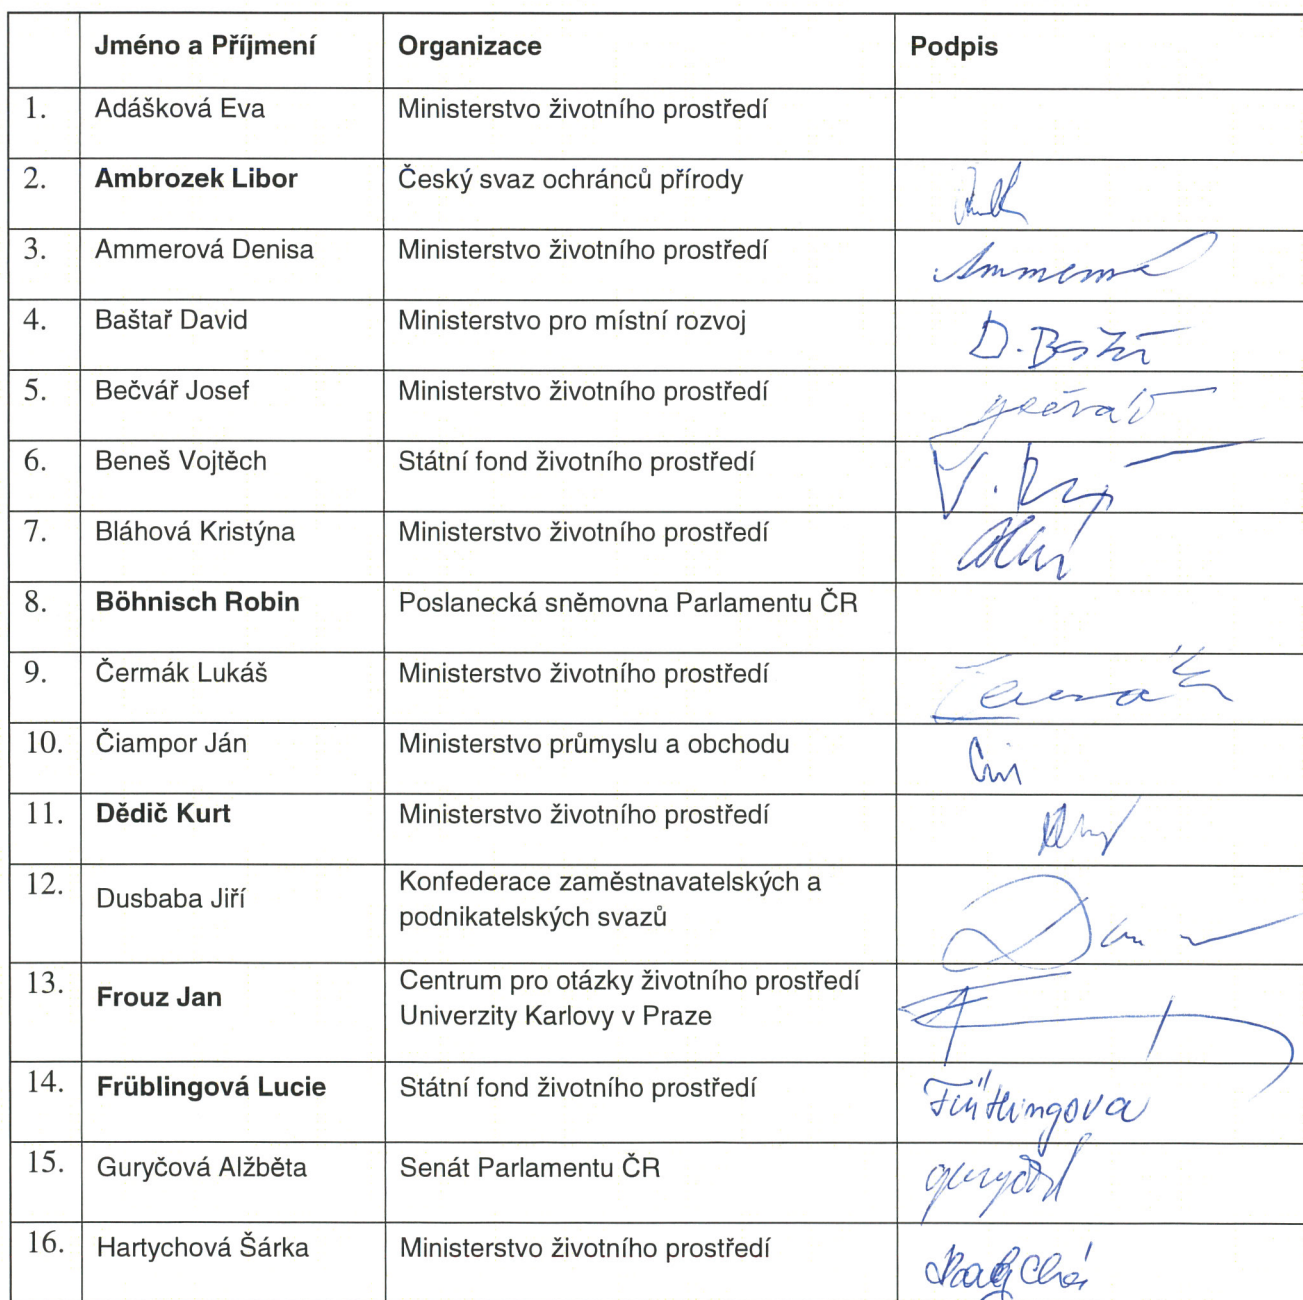 Jméno a Příjmení Organizace Podpis
1. Adášková Eva Ministerstvo životního prostředí
2. Ambrozek Libor Český svaz ochránců přírody
3. Ammerová Denisa Ministerstvo životního prostředí
4. Baštař David Ministerstvo pro místní rozvoj
5. Bečvář Josef Ministerstvo životního prostředí
6. Beneš Vojtěch Státní fond životního prostředí
7. Bláhová Kristýna Ministerstvo životního prostředí
8. Böhnisch Robin Poslanecká sněmovna Parlamentu ČR
9. Čermák Lukáš Ministerstvo životního prostředí
10. Čiampor Ján Ministerstvo průmyslu a obchodu
11. Dědič Kurt Ministerstvo životního prostředí
12. Dusbaba Jiří Konfederace zaměstnavatelských a
podnikatelských svazů
13. Frouz Jan Centrum pro otázky životního prostředí
Univerzity Karlovy v Praze
14. Früblingová Lucie Státní fond životního prostředí
15. Guryčová Alžběta Senát Parlamentu ČR
16. Hartychová Šárka Ministerstvo životního prostředí